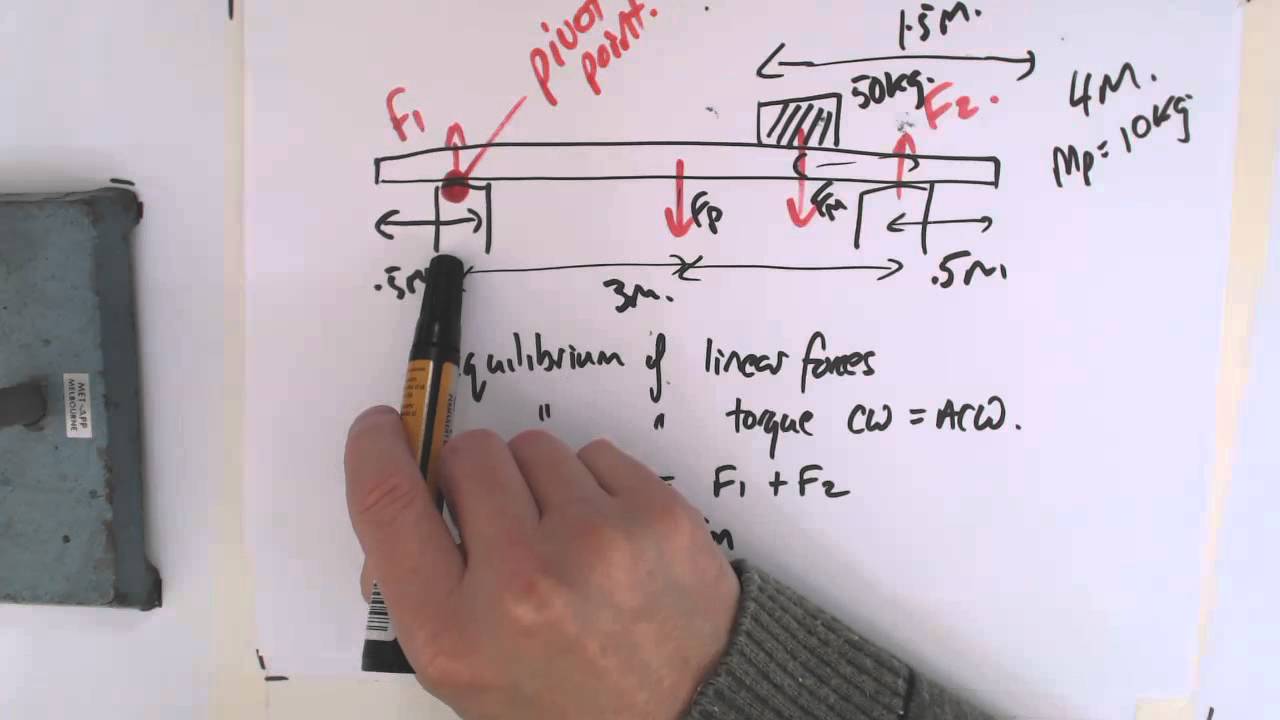 pivot
point.
1.5m.
50kg.
F1
F2.
4m.
Mp=10kg
Fp
Fm
.5m
3m.
.5m
equilibrium of linear forces
" " torque CW = ACW.
= F1 + F2
m
MET-APP
MELBOURNE